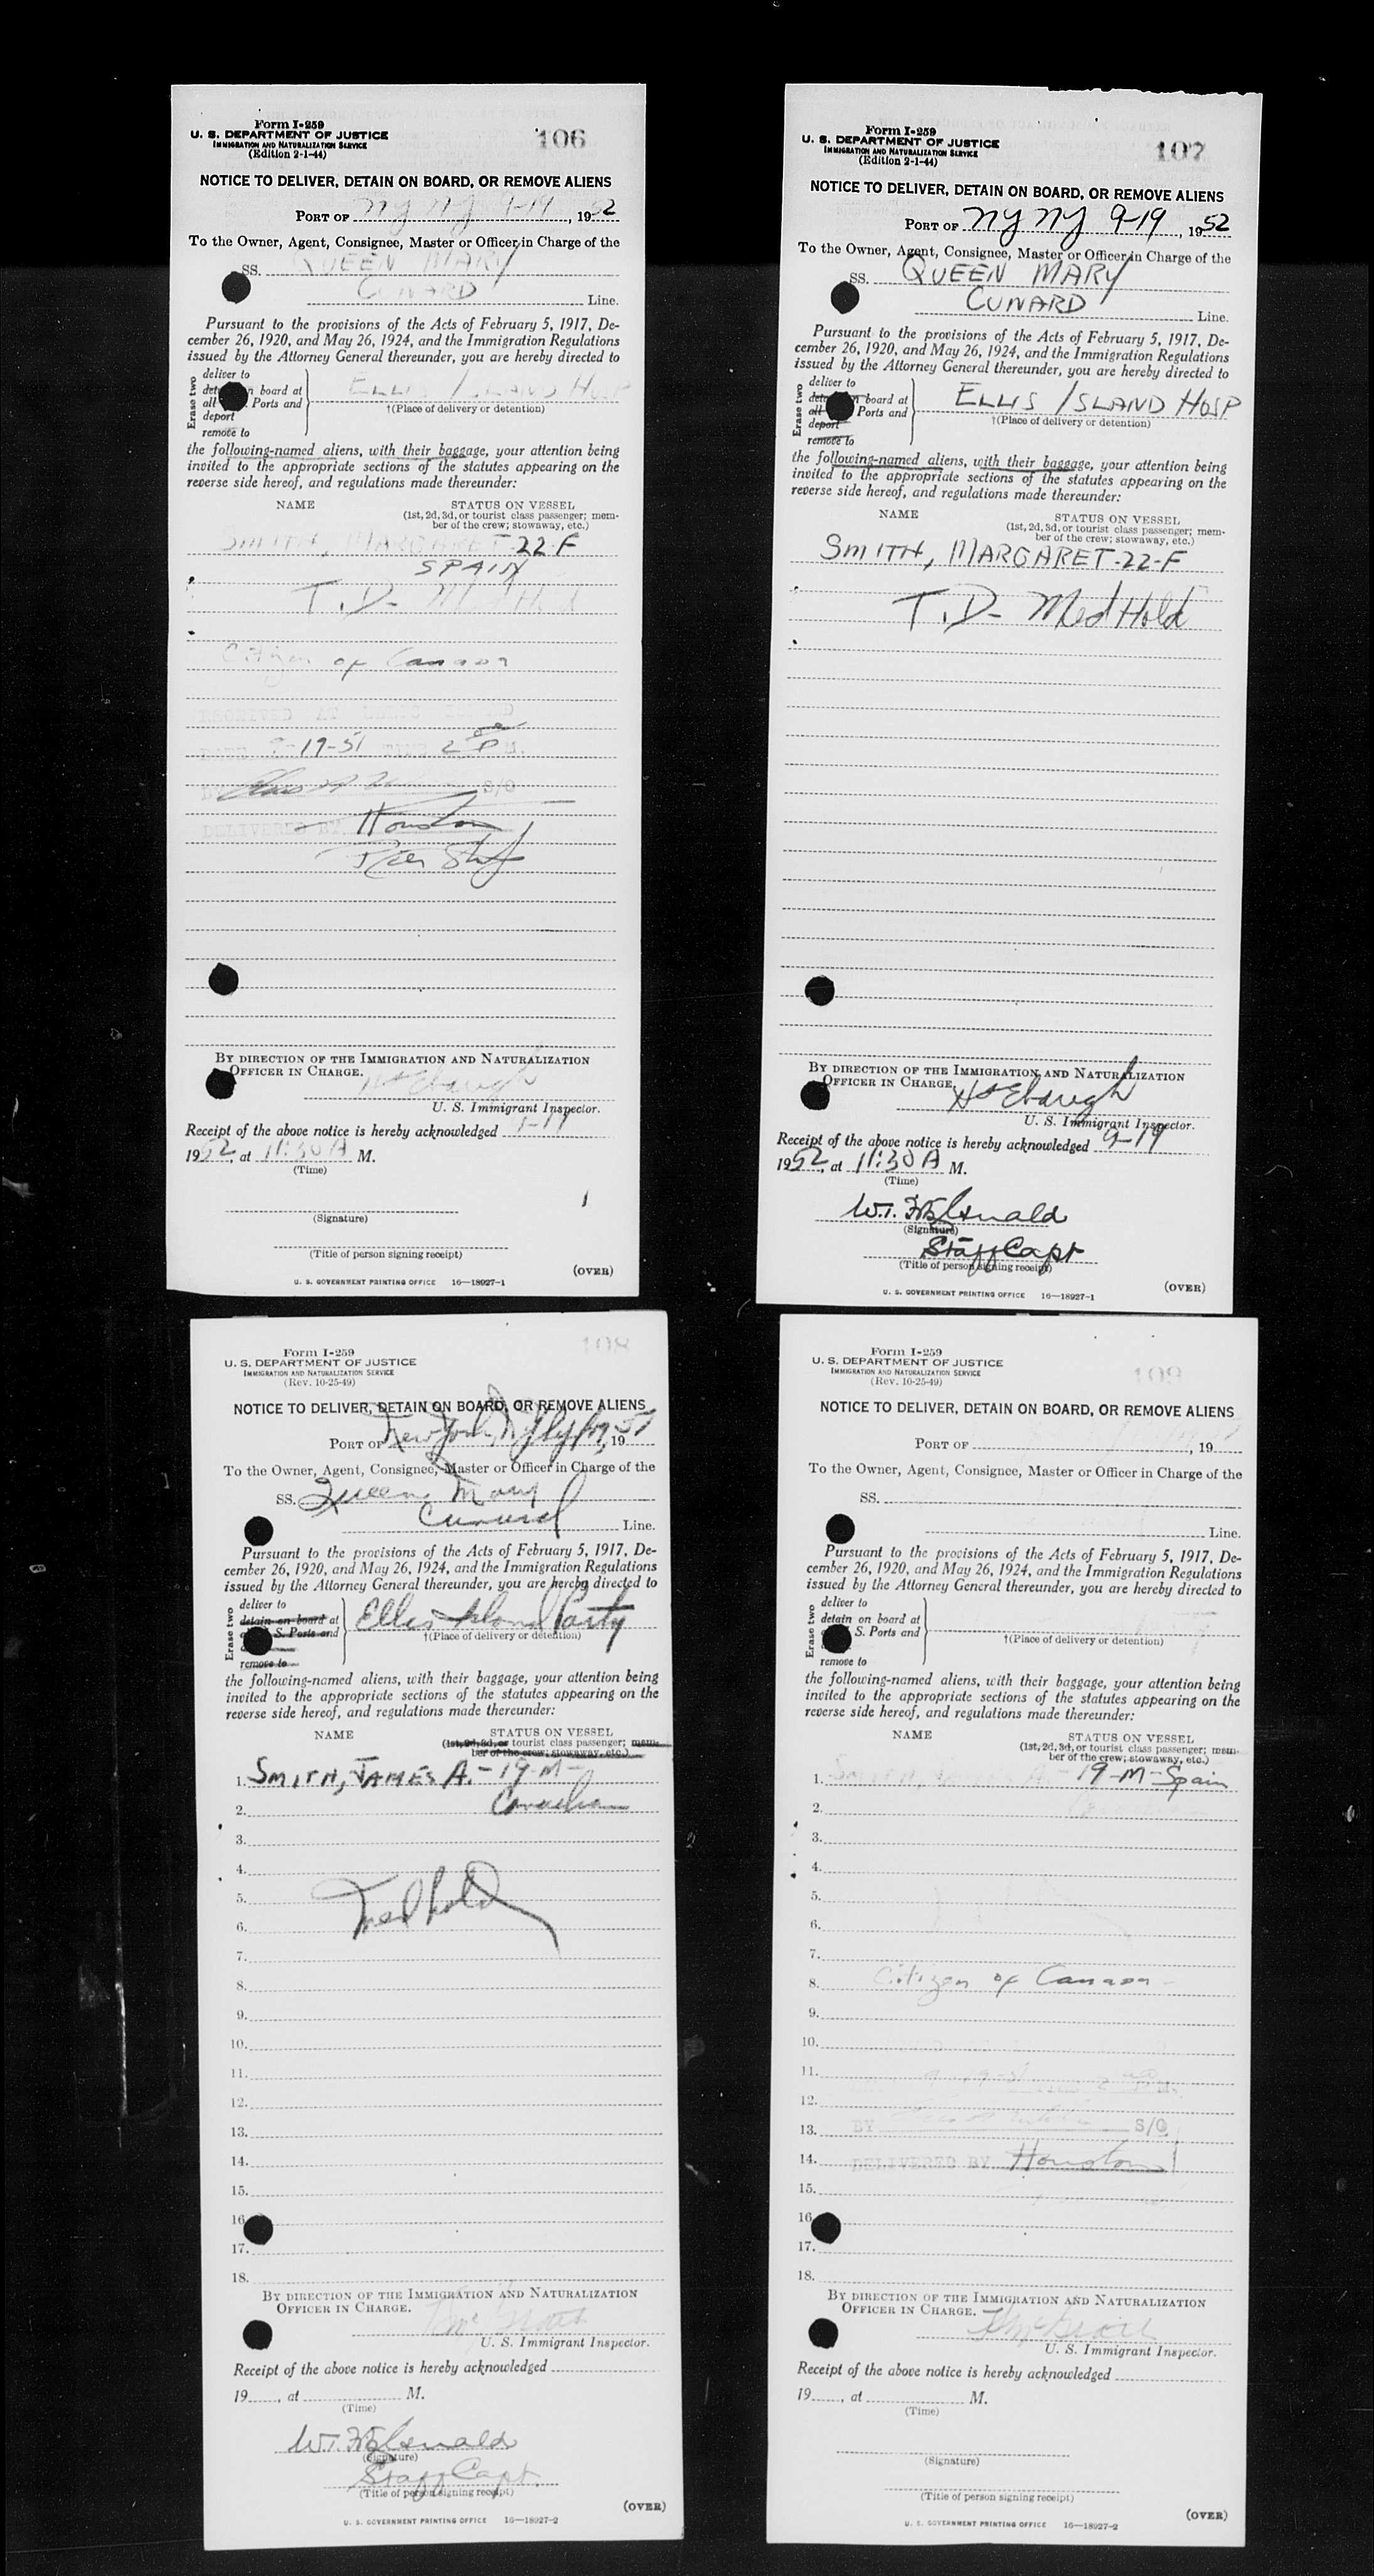 Form I-259
U. S. DEPARTMENT OF JUSTICE
IMMIGRATION AND NATURALIZATION SERVICE
(Edition 2-1-44)
106
NOTICE TO DELIVER, DETAIN ON BOARD, OR REMOVE ALIENS
PORT OF NY NY 9-19, 1952
To the Owner, Agent, Consignee, Master or Officer in Charge of the
SS. QUEEN MARY
CUNARD Line.
Pursuant to the provisions of the Acts of February 5, 1917, De-
cember 26, 1920, and May 26, 1924, and the Immigration Regulations
issued by the Attorney General thereunder, you are hereby directed to
Erase two
deliver to
board at
all Ports and
deport
remove to
ELLIS ISLAND HOSP
†(Place of delivery or detention)
the following-named aliens, with their baggage, your attention being
invited to the appropriate sections of the statutes appearing on the
reverse side hereof, and regulations made thereunder:
NAME STATUS ON VESSEL
(1st, 2d, 3d, or tourist class passenger; mem-
ber of the crew; stowaway, etc.)
SMITH, MARGARET-22-F
SPAIN
T.D- Med Hold
Citizen of Canada
RECEIVED AT ELLIS ISLAND
DATE 9-19-51 TIME 2 P M.
BY S/O
DELIVERED BY Houston
BY DIRECTION OF THE IMMIGRATION AND NATURALIZATION
OFFICER IN CHARGE.
U. S. Immigrant Inspector.
Receipt of the above notice is hereby acknowledged 9-19
1952, at 11:30 A M.
(Time)
(Signature)
(Title of person signing receipt)
(OVER)
U. S. GOVERNMENT PRINTING OFFICE 16—18927-1
Form I-259
U. S. DEPARTMENT OF JUSTICE
IMMIGRATION AND NATURALIZATION SERVICE
(Edition 2-1-44)
107
NOTICE TO DELIVER, DETAIN ON BOARD, OR REMOVE ALIENS
PORT OF NY NY 9-19, 1952
To the Owner, Agent, Consignee, Master or Officer in Charge of the
SS. QUEEN MARY
CUNARD Line.
Pursuant to the provisions of the Acts of February 5, 1917, De-
cember 26, 1920, and May 26, 1924, and the Immigration Regulations
issued by the Attorney General thereunder, you are hereby directed to
Erase two
deliver to
board at
all Ports and
deport
remove to
ELLIS ISLAND HOSP
†(Place of delivery or detention)
the following-named aliens, with their baggage, your attention being
invited to the appropriate sections of the statutes appearing on the
reverse side hereof, and regulations made thereunder:
NAME STATUS ON VESSEL
(1st, 2d, 3d, or tourist class passenger; mem-
ber of the crew; stowaway, etc.)
SMITH, MARGARET-22-F
T.D- Med Hold
BY DIRECTION OF THE IMMIGRATION AND NATURALIZATION
OFFICER IN CHARGE.
U. S. Immigrant Inspector.
Receipt of the above notice is hereby acknowledged 9-19
1952, at 11:30 A M.
(Time)
(Signature)
Staff Capt
(Title of person signing receipt)
(OVER)
U. S. GOVERNMENT PRINTING OFFICE 16—18927-1
Form I-259
U. S. DEPARTMENT OF JUSTICE
IMMIGRATION AND NATURALIZATION SERVICE
(Rev. 10-25-49)
108
NOTICE TO DELIVER, DETAIN ON BOARD, OR REMOVE ALIENS
PORT OF New York, 1951
To the Owner, Agent, Consignee, Master or Officer in Charge of the
SS. Queen Mary
Cunard Line.
Pursuant to the provisions of the Acts of February 5, 1917, De-
cember 26, 1920, and May 26, 1924, and the Immigration Regulations
issued by the Attorney General thereunder, you are hereby directed to
Erase two
deliver to
detain on board at
S. Ports and
remove to
Ellis Island Party
†(Place of delivery or detention)
the following-named aliens, with their baggage, your attention being
invited to the appropriate sections of the statutes appearing on the
reverse side hereof, and regulations made thereunder:
NAME STATUS ON VESSEL
(1st, 2d, 3d, or tourist class passenger; mem-
ber of the crew; stowaway, etc.)
1. SMITH, JAMES A.-19-M-
2. Canadian
3.
4.
5. Med hold
6.
7.
8.
9.
10.
11.
12.
13.
14.
15.
16.
17.
18.
BY DIRECTION OF THE IMMIGRATION AND NATURALIZATION
OFFICER IN CHARGE.
U. S. Immigrant Inspector.
Receipt of the above notice is hereby acknowledged
19, at M.
(Time)
(Signature)
Staff Capt.
(Title of person signing receipt)
(OVER)
U. S. GOVERNMENT PRINTING OFFICE 16—18927-2
Form I-259
U. S. DEPARTMENT OF JUSTICE
IMMIGRATION AND NATURALIZATION SERVICE
(Rev. 10-25-49)
109
NOTICE TO DELIVER, DETAIN ON BOARD, OR REMOVE ALIENS
PORT OF , 19
To the Owner, Agent, Consignee, Master or Officer in Charge of the
SS.
Line.
Pursuant to the provisions of the Acts of February 5, 1917, De-
cember 26, 1920, and May 26, 1924, and the Immigration Regulations
issued by the Attorney General thereunder, you are hereby directed to
Erase two
deliver to
detain on board at
S. Ports and
remove to
†(Place of delivery or detention)
the following-named aliens, with their baggage, your attention being
invited to the appropriate sections of the statutes appearing on the
reverse side hereof, and regulations made thereunder:
NAME STATUS ON VESSEL
(1st, 2d, 3d, or tourist class passenger; mem-
ber of the crew; stowaway, etc.)
1. 19-M-Spain
2.
3.
4.
5.
6.
7.
8. Citizen of Canada-
9.
10.
11.
12.
13. BY S/O
14. DELIVERED BY Houston
15.
16.
17.
18.
BY DIRECTION OF THE IMMIGRATION AND NATURALIZATION
OFFICER IN CHARGE.
U. S. Immigrant Inspector.
Receipt of the above notice is hereby acknowledged
19, at M.
(Time)
(Signature)
(Title of person signing receipt)
(OVER)
U. S. GOVERNMENT PRINTING OFFICE 16—18927-2